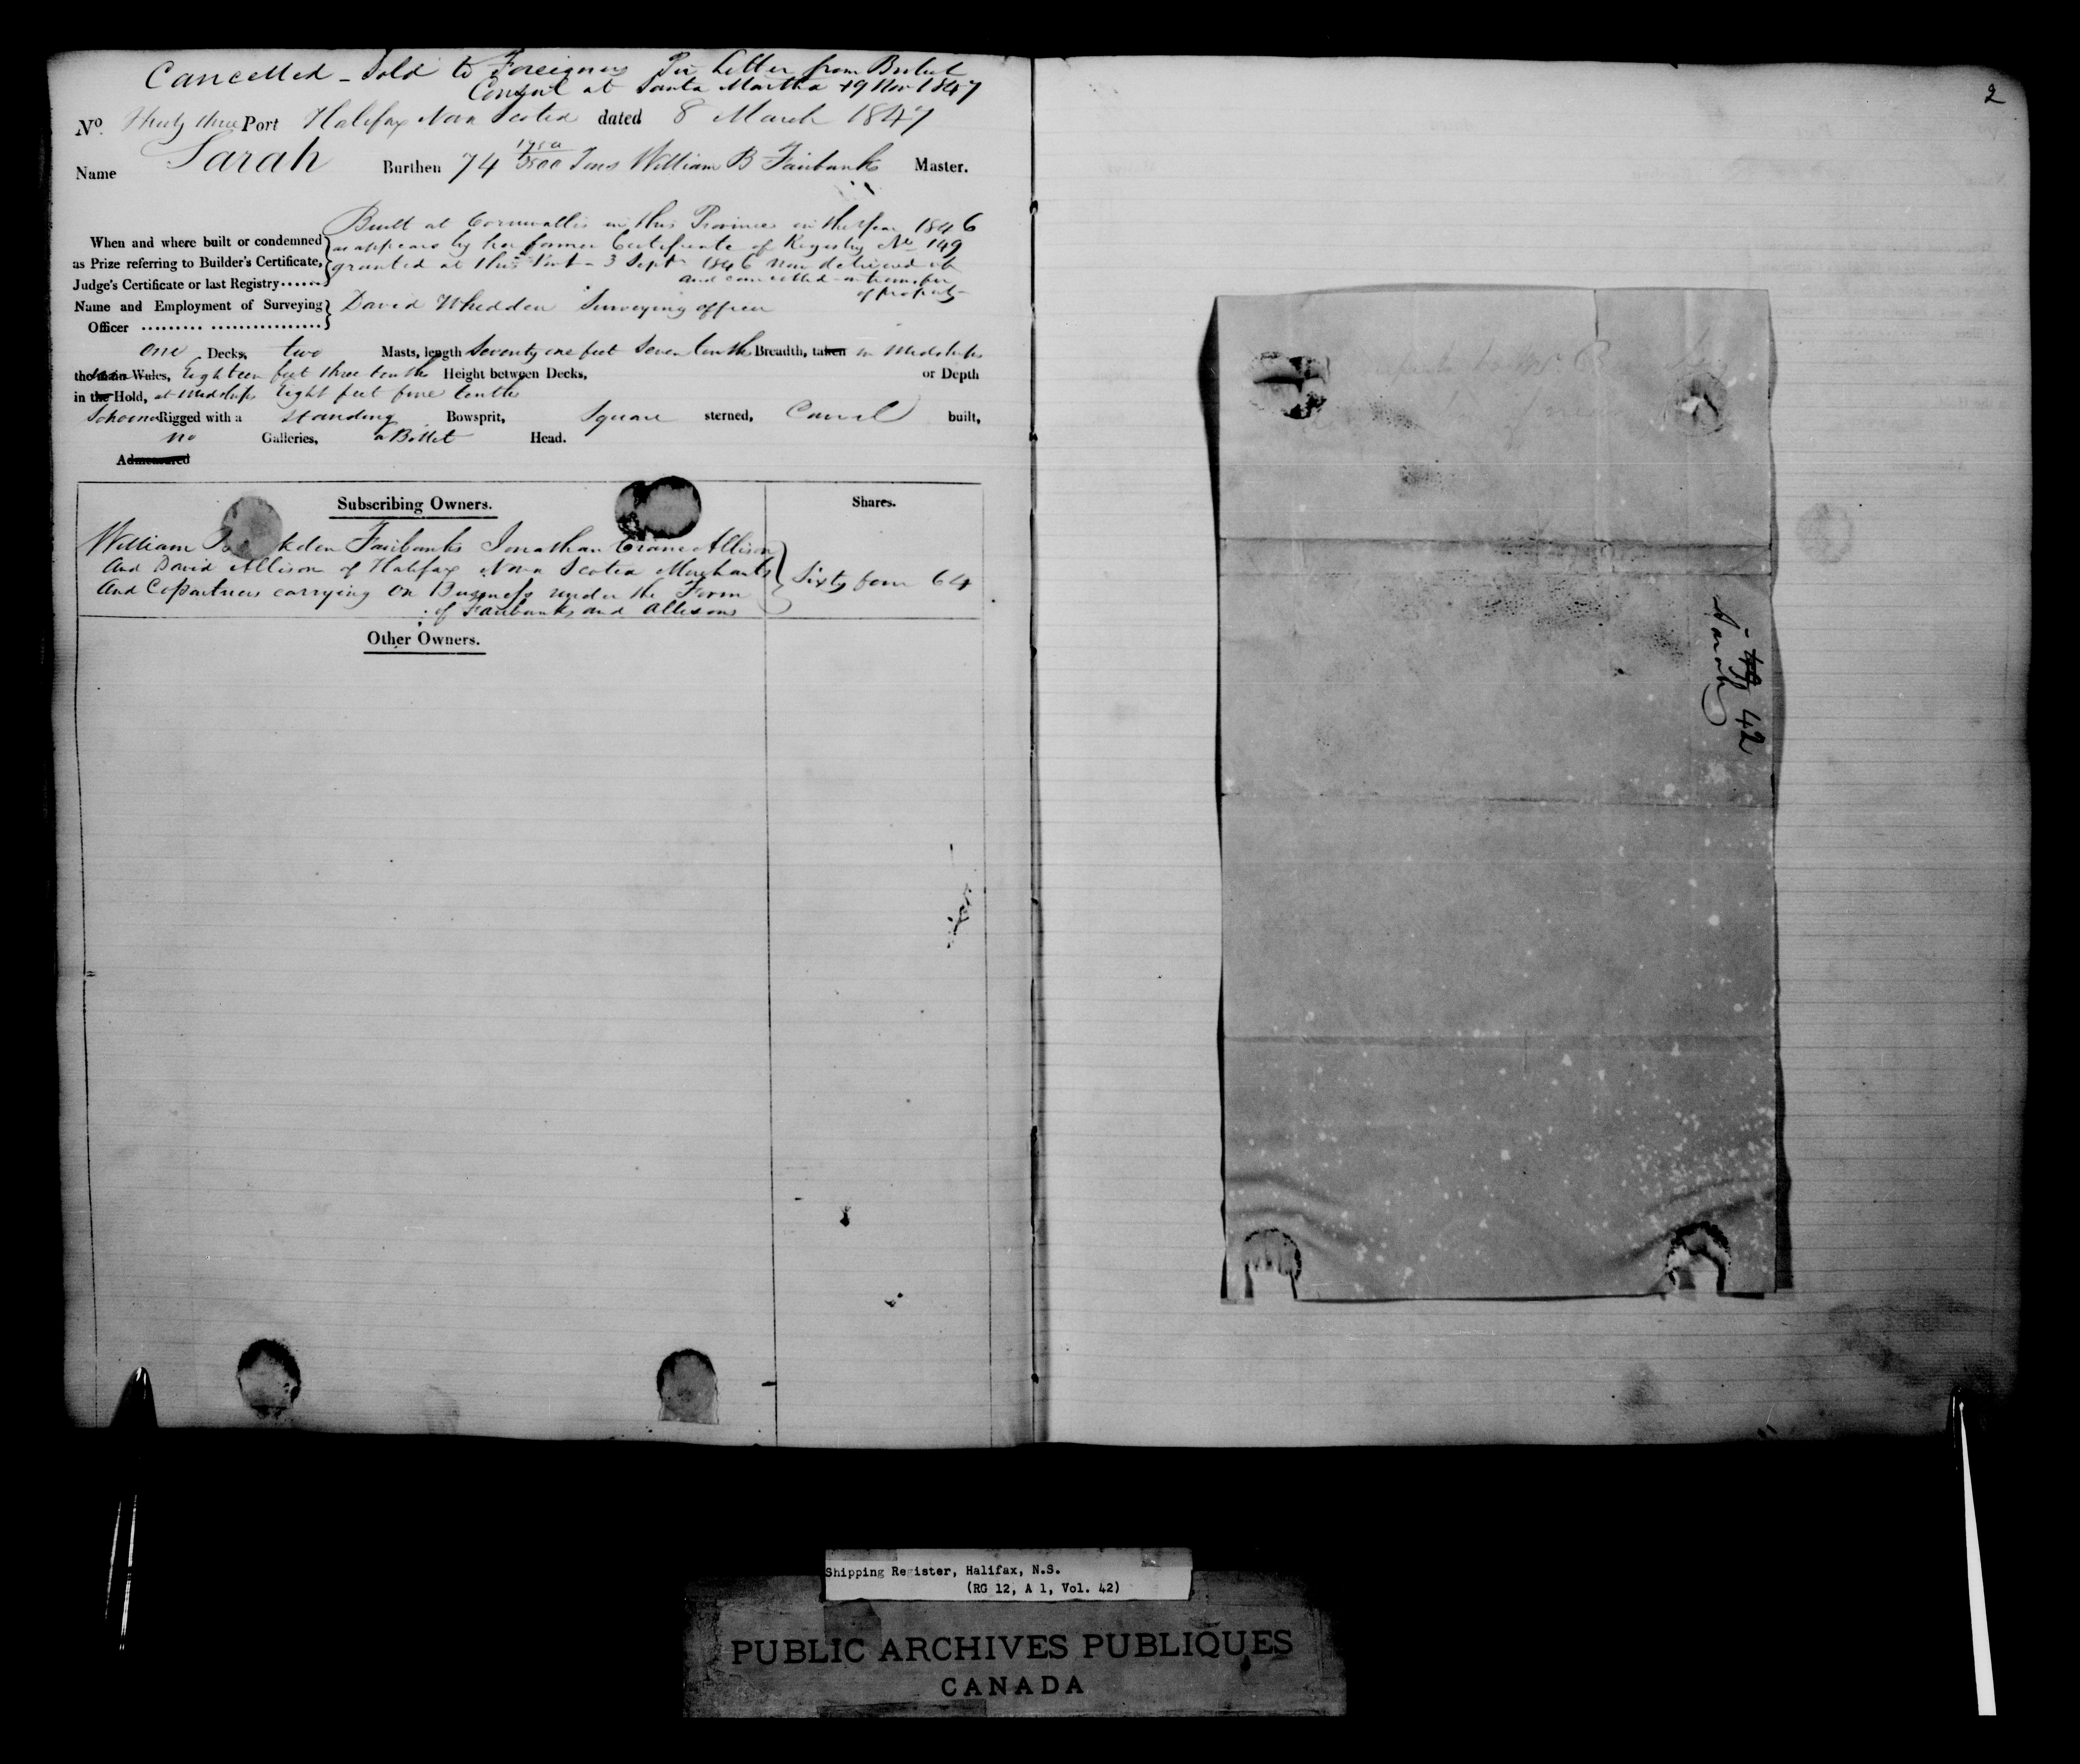 Cancelled - Sold to Foreigners Per Letter from British
Consul at Santa Martha 19 Nov 1847
No. Thirty three Port Halifax Nova Scotia dated 8 March 1847
Name Sarah Burthen 74 1750/3500 Tons William B Fairbanks Master.
Built at Cornwallis in this Province in the Year 1846
When and where built or condemned as appears by her former Certificate of Registry No 149
as Prize referring to Builder's Certificate, granted at this Port - 3 Sept 1846 now delivered up
Judge's Certificate or last Registry...... and cancelled on transfer
of property
Name and Employment of Surveying David Whedden Surveying officer
Officer
one Decks, two Masts, length Seventy one feet Seven tenths Breadth, taken in Midships
the main Wales, Eighteen feet three tenths Height between Decks, or Depth
in the Hold, at Midships Eight feet five tenths
Schooner Rigged with a standing Bowsprit, Square sterned, Carvel built,
no Galleries, a Billet Head.
Admeasured
Subscribing Owners. Shares.
William Fairbanks Jonathan Crane Allison
And David Allison of Halifax Nova Scotia Merchants Sixty four 64
And Copartners carrying on Business under the Form
of Fairbanks and Allisons
Other Owners.
2
42
Sarah
Shipping Register, Halifax, N.S.
(RG 12, A 1, Vol. 42)
PUBLIC ARCHIVES PUBLIQUES
CANADA